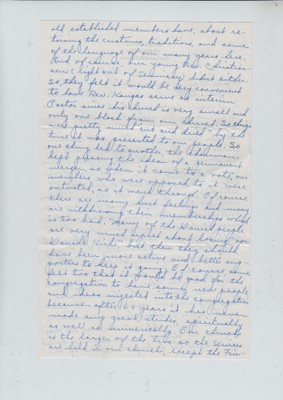 old established members have, about re-
taining the customs, traditions, and some
of the language of our many years here.
And of course, our young Rev. Christian-
sen (right out of seminary) didn't either.
So they felt it would be very convenient
to have Rev. Kanges serve as interim
Pastor since his church is very small and
only one block from our church. So things
were pretty much "cut and dried" by the
time it was presented to our people. So
one thing led to another, the
kept pressing the idea of a permanent
merger, so when it came to a vote, our
members who were opposed to it were
outvoted, so it went through. Of course
there are many hurt feelings and many
are withdrawing their memberships which
is too bad. Many of the Danish people
are very much upset about losing "our
Danish Kirke" but then they should
have been more active and better sup-
porters to keep it. Of course, some
felt too that it would be good for the
congregation to have some new people
and ideas injected into the congregation
because after 60 years it has never
made any great strides, spiritually
as well as numerically. Our church
is the larger of the two so the services
are held in our church, except the Fin-